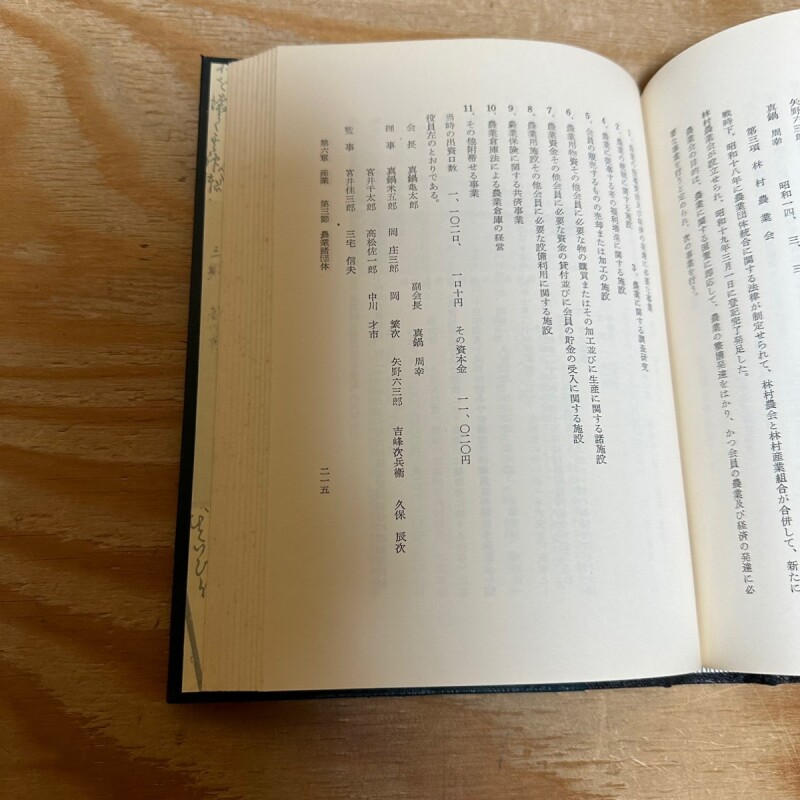 矢野六三郎
真鍋 周幸 昭和一四、三、三、
第三項 林村農業会
戦時下、昭和十八年に農業団体統合に関する法律が制定せられて、林村農会と林村産業組合が合併して、新たに
林村農業会が設立せられ、昭和十九年三月一日に登記完了発足した。
農業会の目的は、農業に関する国策に即応して、農業の整備発達をはかり、かつ会員の農業及び経済の発達に必
要な事業を行うと定められ、次の事業を行う。
3、農業に関する調査研究
4、農業に従事する者の福利増進に関する施設
5、会員の販売するものの売却または加工の施設
6、農業用物資その他会員に必要な物の購買またはその加工並びに生産に関する諸施設
7、農業資金その他会員に必要な資金の貸付並びに会員の貯金の受入に関する施設
8、農業用施設その他会員に必要な設備利用に関する施設
9、農業保険に関する共済事業
10、農業倉庫法による農業倉庫の経営
11、その他附帯せる事業
当時の出資口数 一、一〇二口、 一口十円 その資本金 一一、〇二〇円
役員左のとおりである。
会長 真鍋亀太郎 副会長 真鍋 周幸
理事 真鍋米五郎 岡 庄三郎 岡 繁次 矢野六三郎 吉峰次兵衞 久保 辰次
宮井千太郎 高松佐一郎 中川 才市
監事 宮井佳三郎 三宅 信夫
第六章 産業 第三節 農業諸団体
二一五